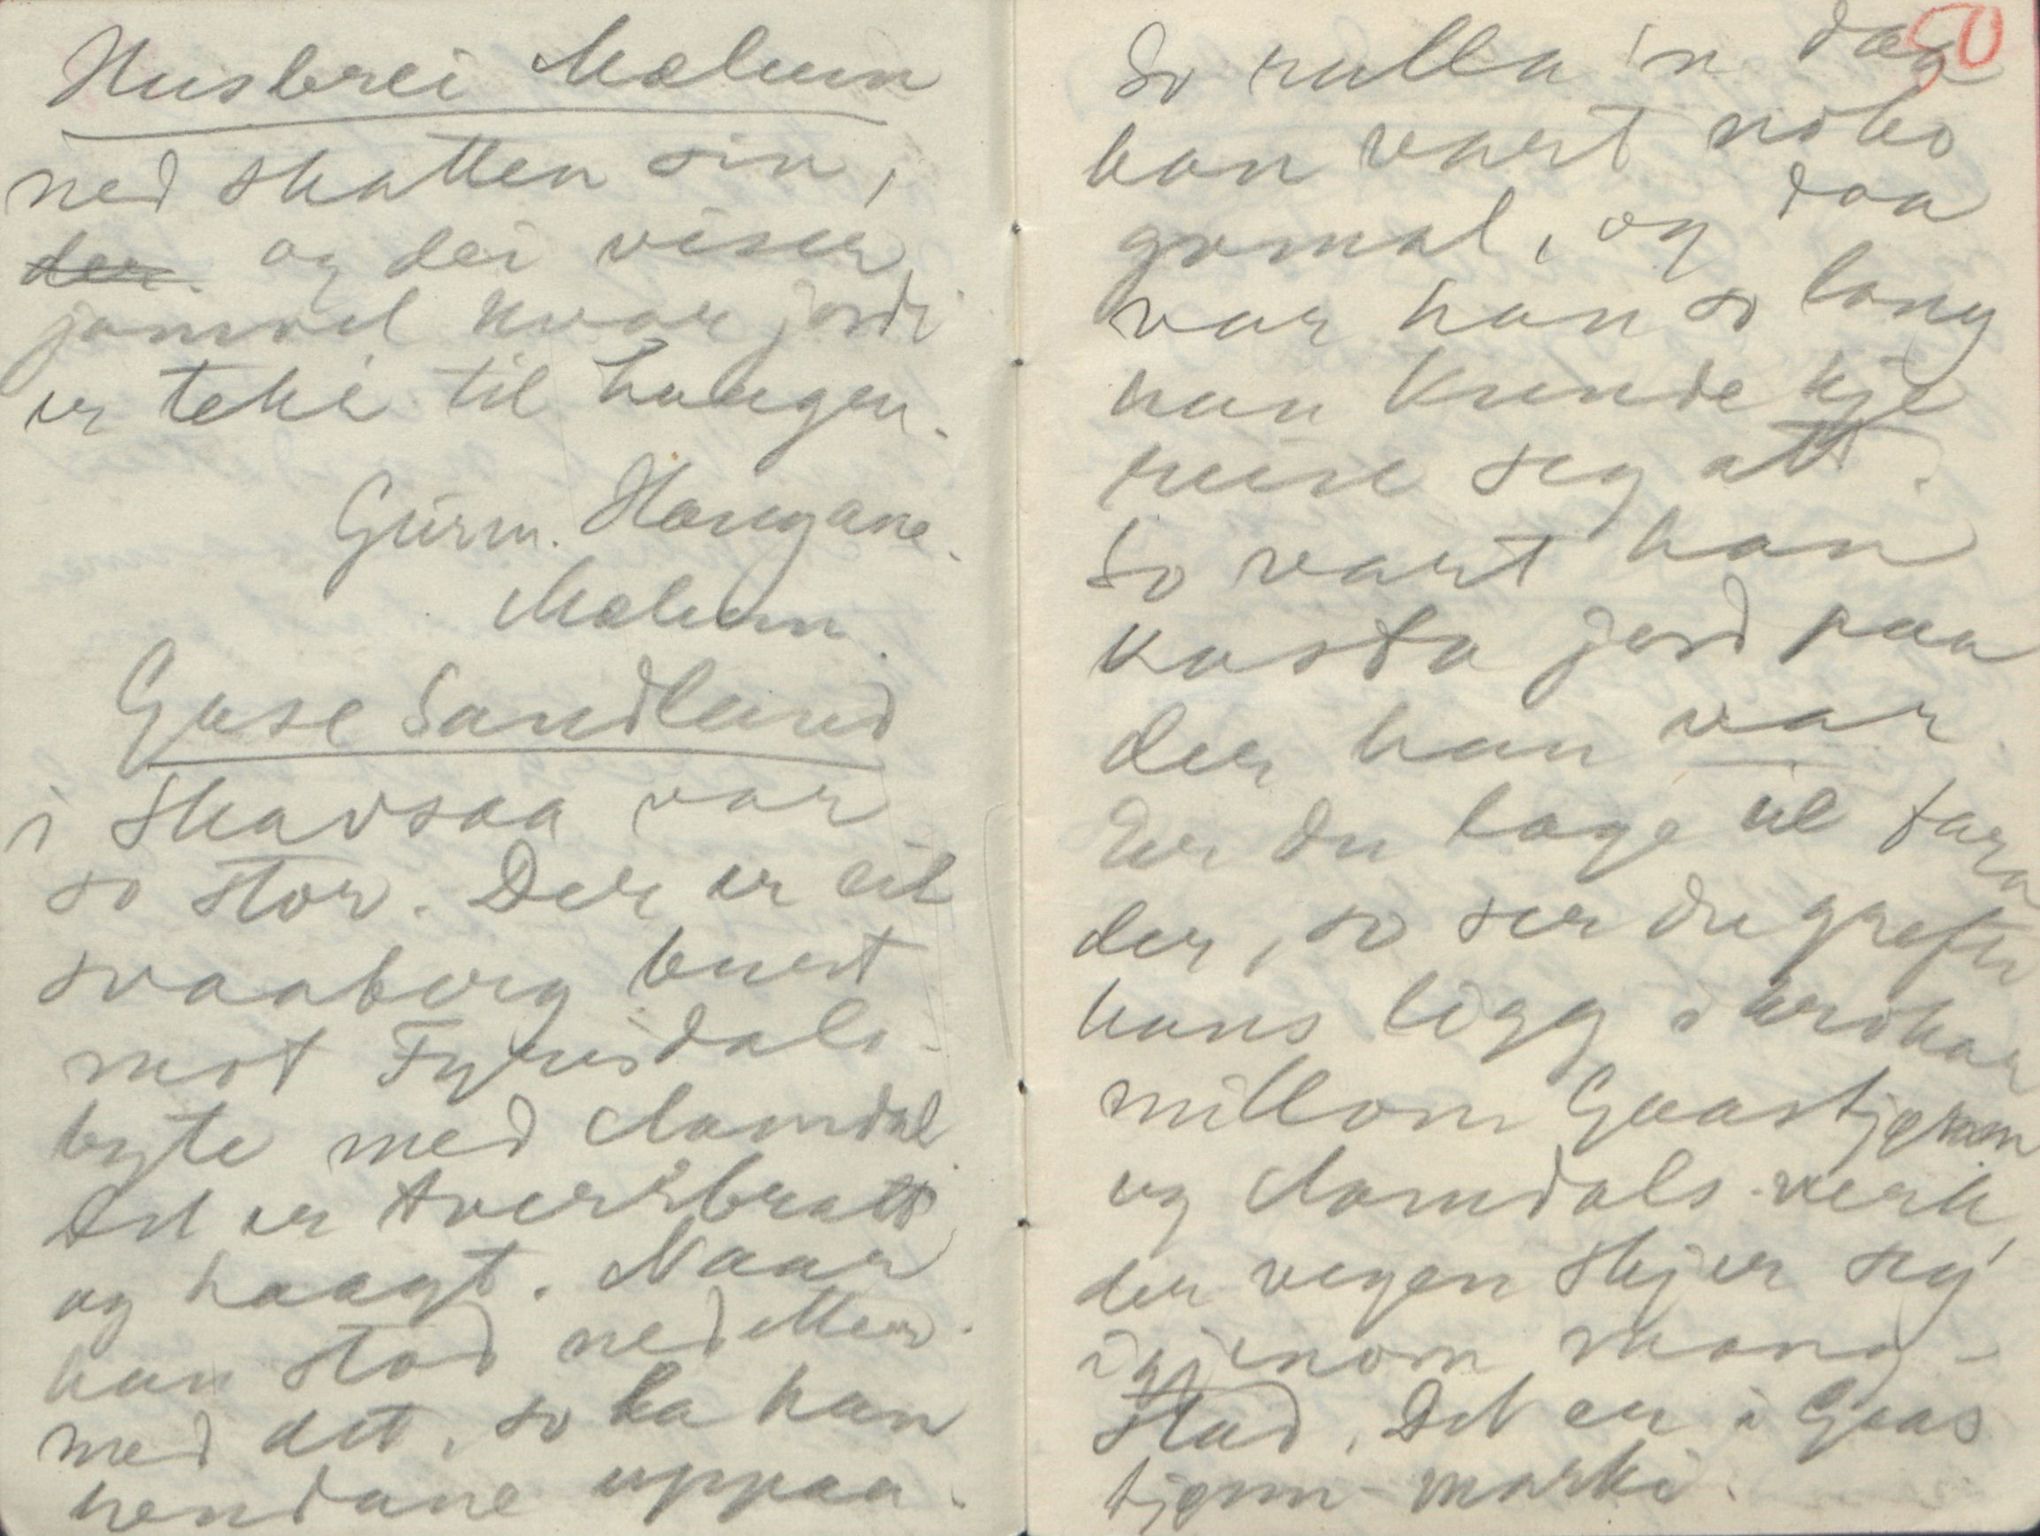 Husbrei Mælum
ned skatten sin,
der. og dei viser
jamvel kvar jordi
er teki til haugen.
Gurm. Haugane.
Mælum.
Guse Sandland
i Skavsaa var
so stor. Der er eit
svaaberg burt
mot Fyrisdals-
byte med Aamdal
Det er tversbratt
og haagt. Naar
han stod nedmed
med det, so la han
hendane uppaa.
50
So rulla 'n daa
han vart noko
gomal, og daa
var han so lang
han kunde kje
reise seg att.
So vart han
kasta jord paa
der han var
Er du laga til fara
der, so ser du grefti
hans ligg i krokar
millom Gaastjønn
og Aamdals-verk,
der vegen skjer seg
igjenom Mand-
stad. Det er i Gaas
tjønn-marki.